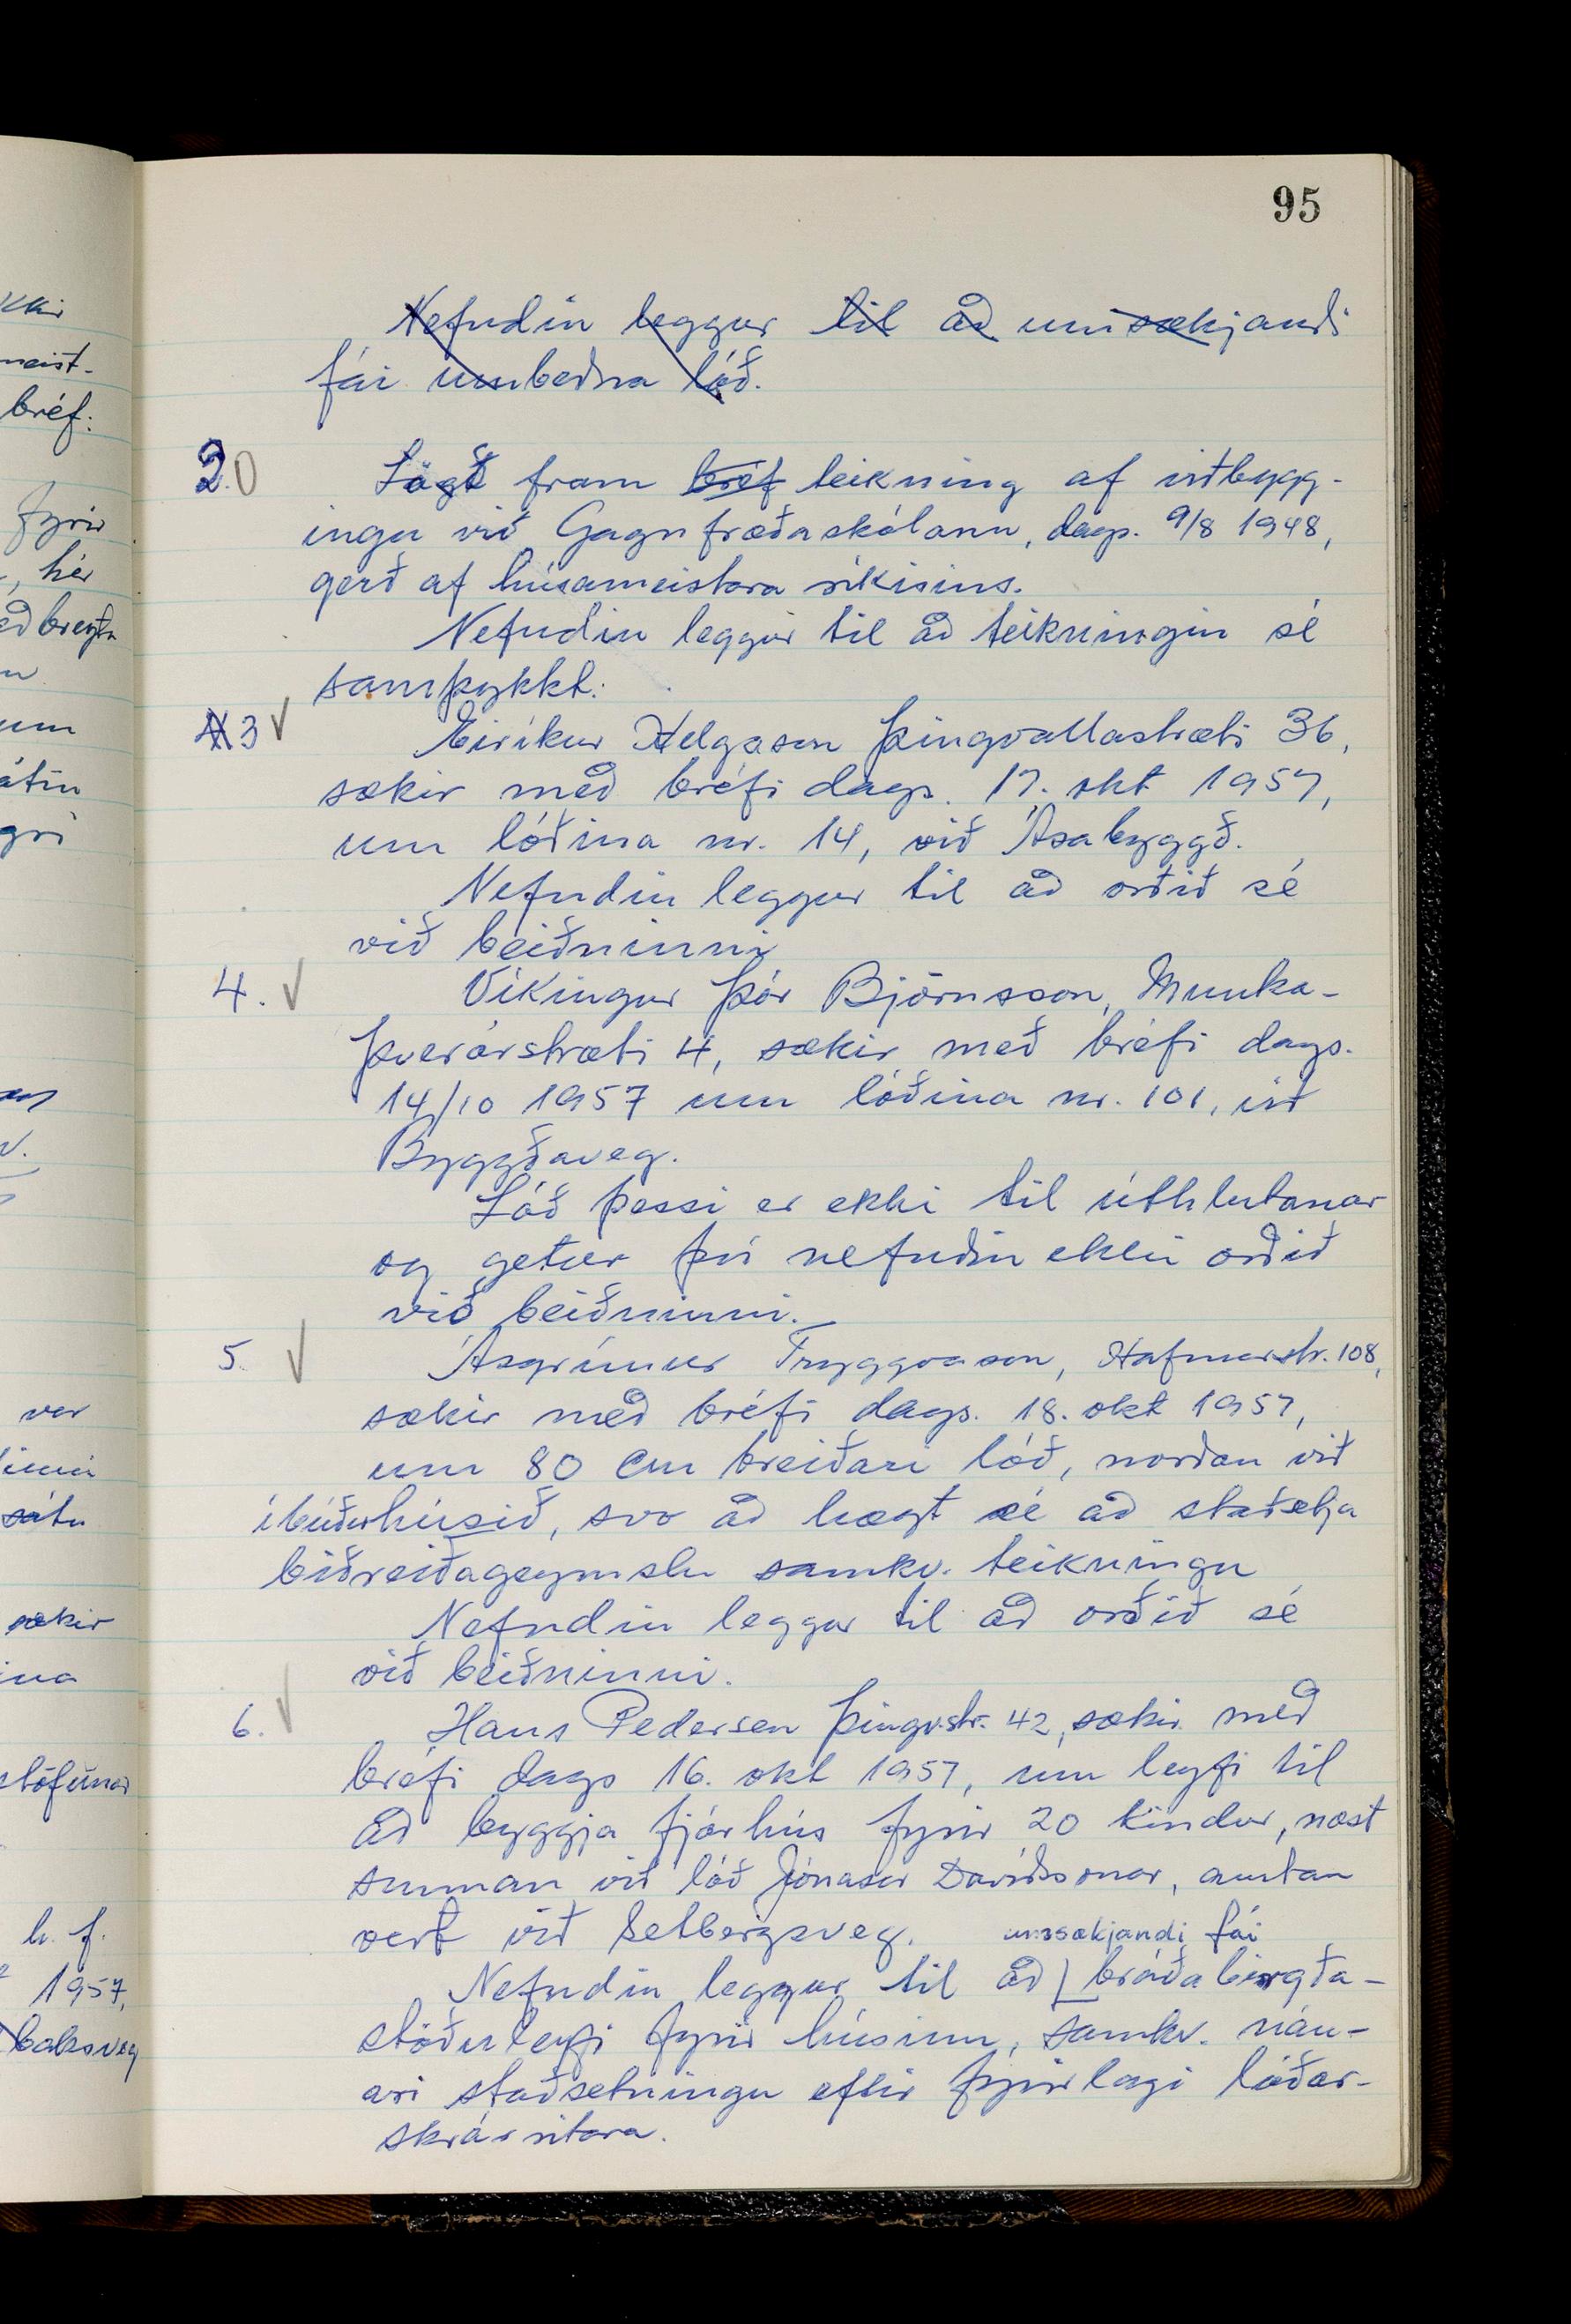 95
Nefndin leggur til að umsækjandi
fái umbeðna lóð.
2.0 Lögð fram bréf teikning af viðbygg-
ingu við Gagnfræðaskólann, dags. 9/8 1948,
gerð af húsameistara ríkisins.
Nefndin leggur til að teikningin sé
samþykkt.
3 Eiríkur Helgason Þingvallastræti 36,
sækir með bréfi dags. 17. okt 1957,
um lóðina nr. 14, við Ásabyggð.
Nefndin leggur til að orðið sé
við beiðninni
4. Víkingur Þór Björnsson, Munka-
þverárstræti 4, sækir með bréfi dags.
14/10 1957 um lóðina nr. 101, við
Byggðaveg.
Lóð þessi er ekki til úthlutanar
og getur því nefndin ekki orðið
við beiðninni.
5. Ásgrímur Tryggvason, Hafnarstr. 108,
sækir með bréfi dags. 18. okt 1957,
um 80 cm breiðari lóð, norðan við
íbúðarhúsið, svo að hægt sé að staðsetja
biðreiðageymslu samkv. teikningu
Nefndin leggur til að orðið sé
við beiðninni.
6. Hans Pedersen Þingv.str. 42, sækir með
bréfi dags 16. okt 1957, um leyfi til
að byggja fjárhús fyrir 20 kindur, næst
sunnan við lóð Jónasar Davíðsonar, austan
vert við Selbergsveg.
umsækjandi fái
Nefndin leggur til að bráðabirgða-
stöðuleyfi fyrir húsinu, samkv. nán-
ari staðsetningu eftir fyrirlagi lóðar-
skrárritara.